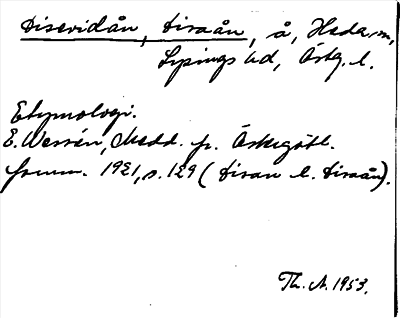 Disevidån, Disaån, å, Heda sn,
Lysings hd, Östg. l.
Etymologi.
E. Wessén, Medd. fr. Östergötl.
fornm. 1921, s. 129 (Disan l. Disaån).
Th. A. 1953.